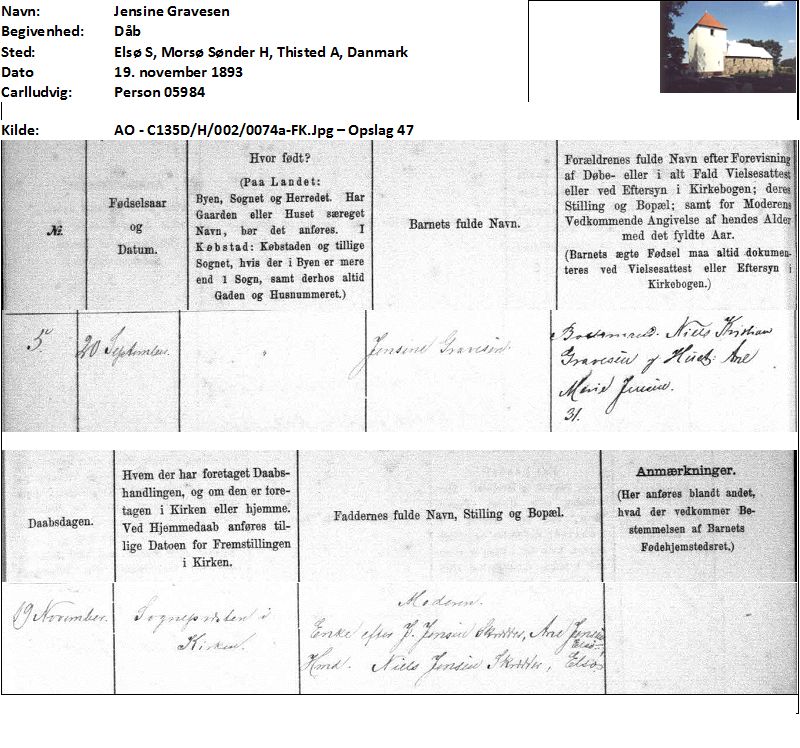 Navn: Jensine Gravesen
Begivenhed: Dåb
Sted: Elsø S, Morsø Sønder H, Thisted A, Danmark
Dato 19. november 1893
Carlludvig: Person 05984
Kilde: AO - C135D/H/002/0074a-FK.Jpg – Opslag 47
№.
Fødselsaar
og
Datum.
Hvor født?
(Paa Landet:
Byen, Sognet og Herredet. Har
Gaarden eller Huset særeget
Navn, bør det anføres. I
Købstad: Købstaden og tillige
Sognet, hvis der i Byen er mere
end 1 Sogn, samt derhos altid
Gaden og Husnummeret.)
Barnets fulde Navn.
Forældrenes fulde Navn efter Forevisning
af Døbe- eller i alt Fald Vielsesattest
eller ved Eftersyn i Kirkebogen; deres
Stilling og Bopæl; samt for Moderens
Vedkommende Angivelse af hendes Alder
med det fyldte Aar.
(Barnets ægte Fødsel maa altid dokumen-
teres ved Vielsesattest eller Eftersyn i
Kirkebogen.)
5.
20 September.
"
Jensine Gravesen.
Niels Kristian
Gravesen og Hustr. Ane
Marie Jensen.
31.
Daabsdagen.
Hvem der har foretaget Daabs-
handlingen, og om den er fore-
tagen i Kirken eller hjemme.
Ved Hjemmedaab anføres til-
lige Datoen for Fremstillingen
i Kirken.
Faddernes fulde Navn, Stilling og Bopæl.
Anmærkninger.
(Her anføres blandt andet,
hvad der vedkommer Be-
stemmelsen af Barnets
Fødehjemstedsret.)
19 November.
Sognepræsten i
Kirken.
Moderen.
Enke efter J. Jensen Skrædder, Ane Jensen
Elsø,
Hmd. Niels Jensen Skrædder, Elsø